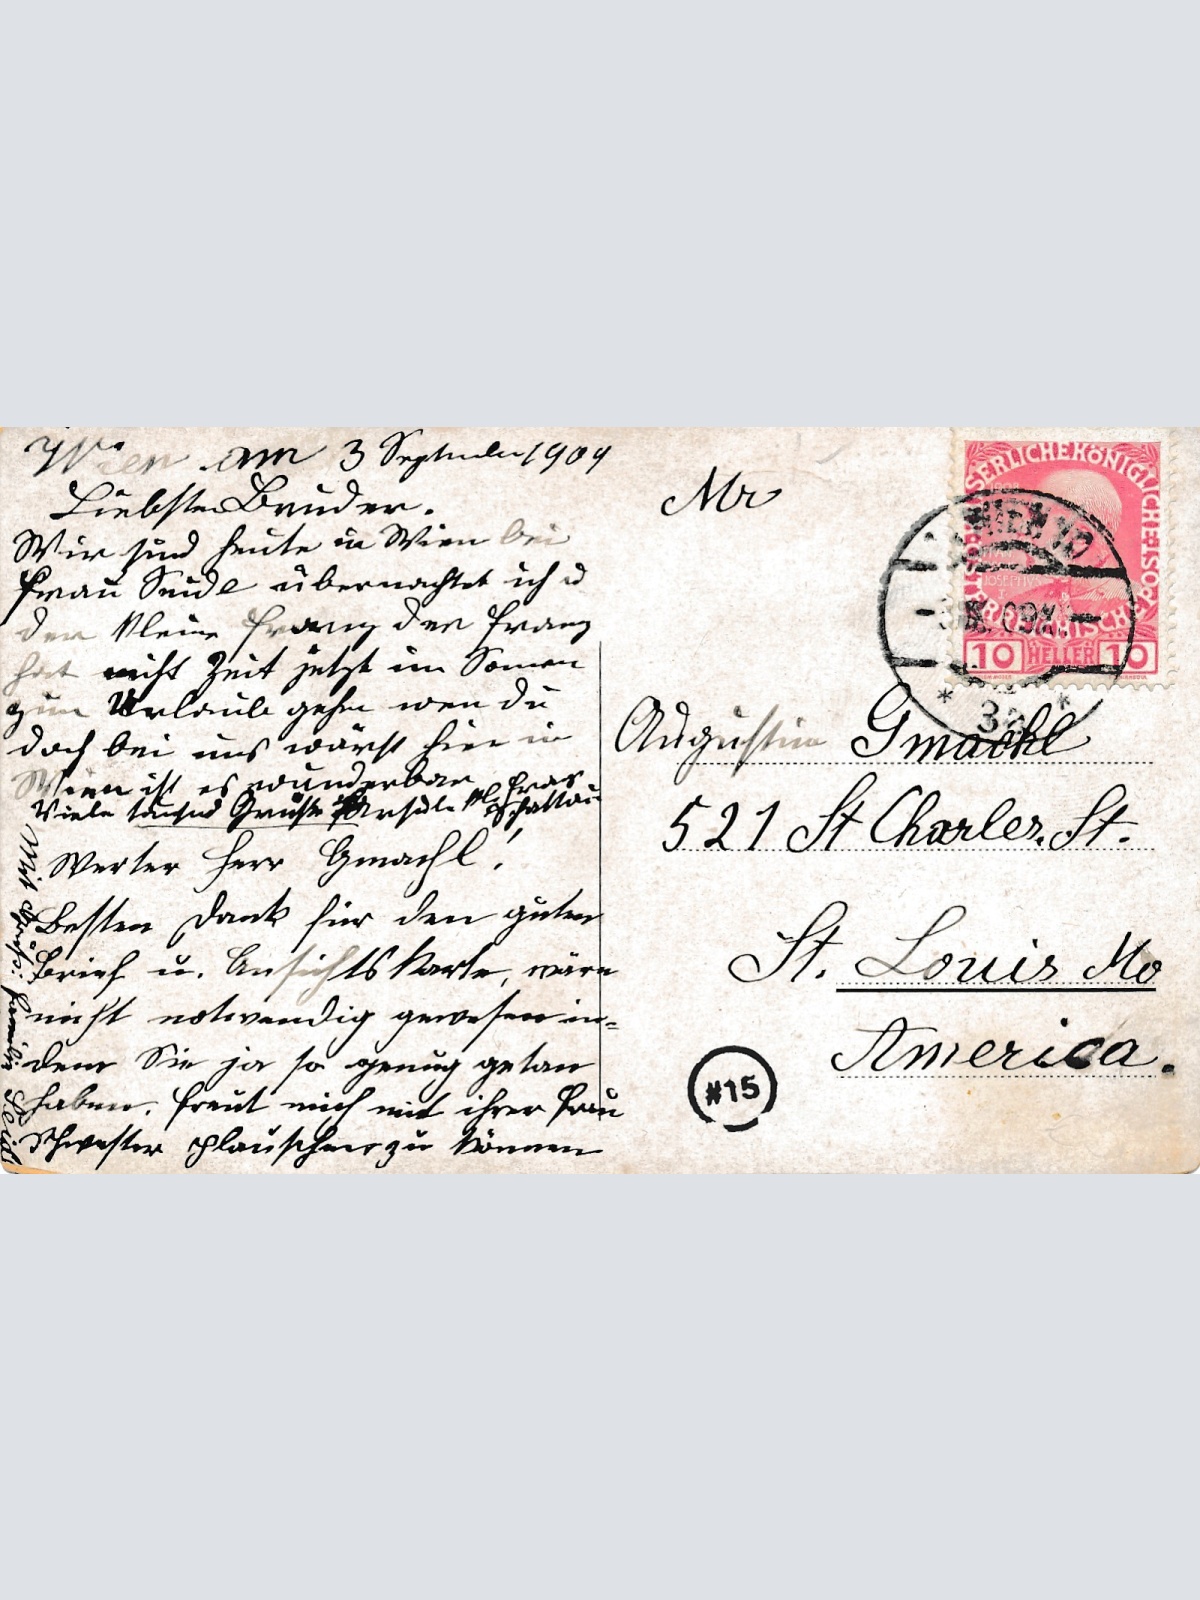 Wien am 3 September 1909
Liebster Bruder.
Wir sind heute in Wien bei
Frau Seidl übernachtet ich u
der kleine Franz der Franz
hat nicht Zeit jetzt im Somer
zum Urlaub gehn wen du
doch bei uns wärst hier in
Wien ist es wunderbar
Viele tausend Grüße Ursula Kl Franz
Werter Herr Gmachl!
Besten Dank für den guten
Brief u. Ansichtskarte, wäre
nicht notwendig gewesen in=
dem Sie ja so genug getan
haben. Freut mich mit ihrer Frau
Schwester plauschen zu können
Mit Grüße: Familie Seidl
Mr
Augustin Gmachl
521 St Charles. St.
St. Louis Mo
America.
#15
KAISERLICHEKÖNIGLICHE ÖSTERREICHISCHE POST
1908
JOSEPHVS
I
10 HELLER 10
WIEN 10
IX. 09 X
* 3a *